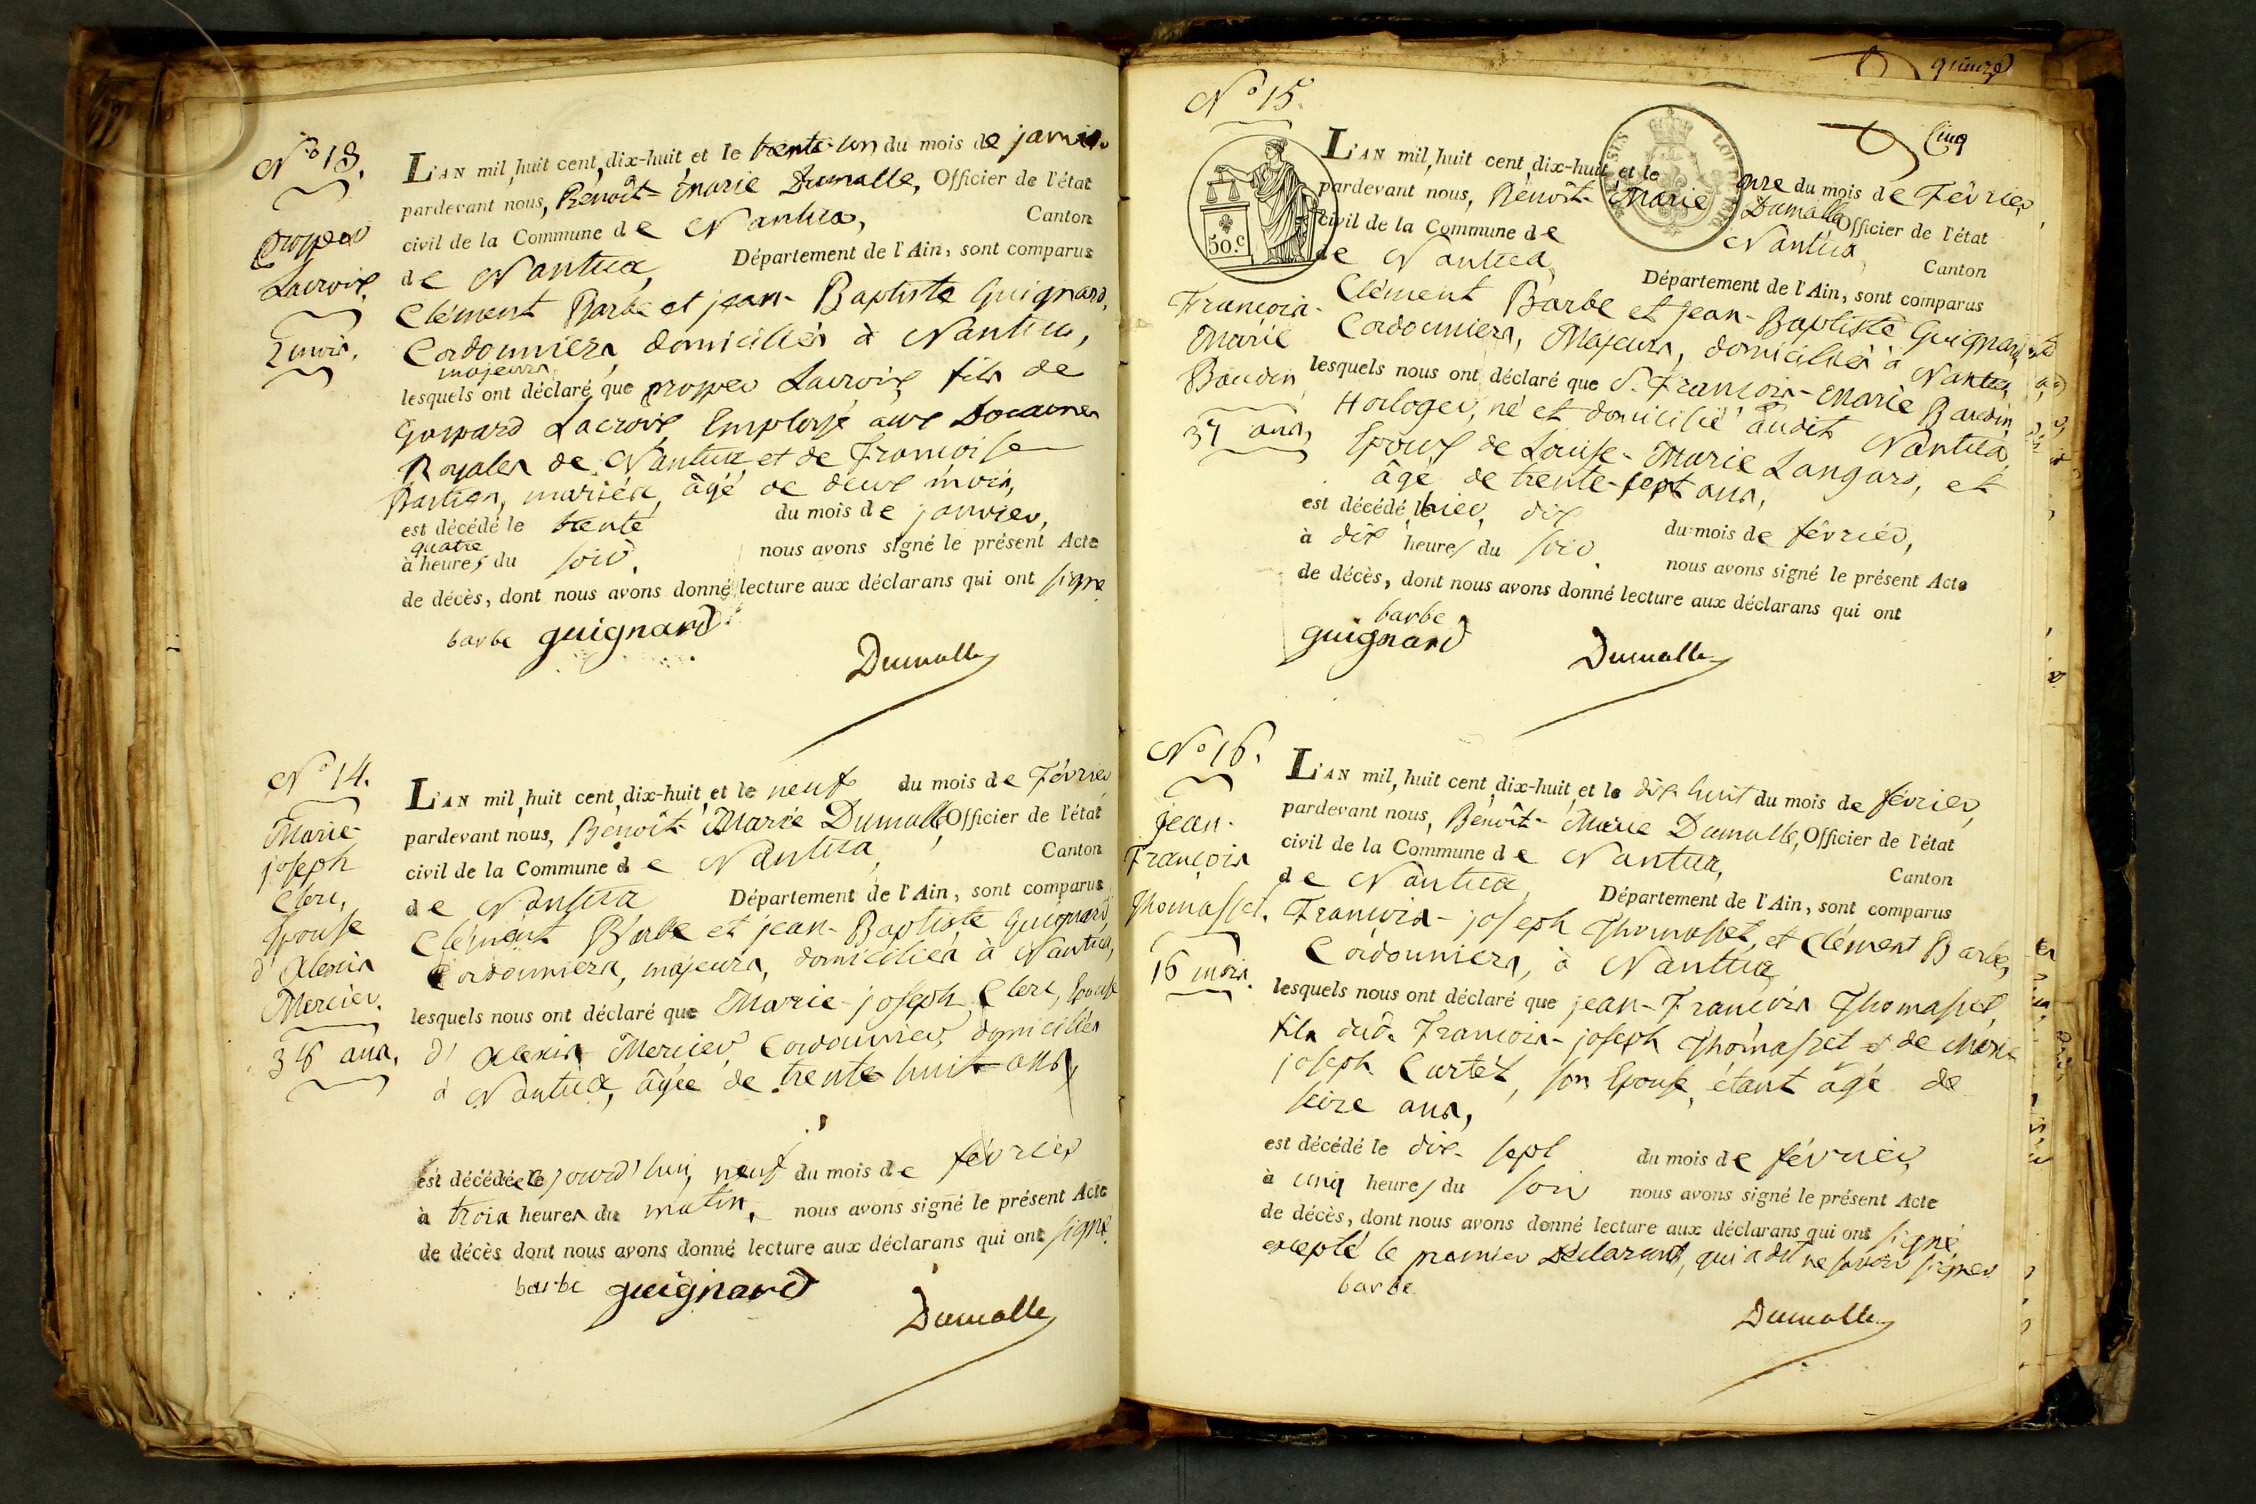 N.o 13.
prosper
Lacroix,
2 mois.
L'AN mil huit cent dix-huit et le trente-un du mois de janvier
pardevant nous, Benoît-Marie Dumalle, Officier de l'état
civil de la Commune de Nantua, Canton
de Nantua, Département de l'Ain, sont comparus
Clément Barbe et jean-Baptiste Guignard,
Cordonniers, domiciliés à Nantua,
majeurs,
lesquels ont déclaré que prosper Lacroix fils de
Gaspard Lacroix Employé aux Domaines
Royales de Nantua et de Françoise
Bastien, mariés, âgé de deux mois,
est décédé le trente du mois de janvier,
quatre
à heures du soir. nous avons signé le présent Acte
de décès, dont nous avons donné lecture aux déclarans qui ont signé
barbe guignard
Dumalle
N.o 14.
Marie
joseph
Clerc,
Epouse
d'Alexis
Mercier.
38 ans.
L'AN mil huit cent dix-huit et le neuf du mois de Février
pardevant nous, Benoît-Marie Dumalle, Officier de l'état
civil de la Commune de Nantua, Canton
de Nantua Département de l'Ain, sont comparus
Clément Barbe et jean-Baptiste Guignard
Cordonniers, majeurs, domiciliés à Nantua,
lesquels nous ont déclaré que Marie-joseph Clerc, Epouse
d'Alexis Mercier Cordonnier, domiciliés
à Nantua, âgée de trente huit ans,
est décédée le jourd'hui, neuf du mois de février
à trois heures du matin, nous avons signé le présent Acte
de décès dont nous avons donné lecture aux déclarans qui ont signé.
barbe guignard
Dumalle
quinze
Cinq
N.o 15.
50.c
François-
Marie
Baudin
37 ans,
L'AN mil huit cent dix-huit et le onze du mois de Février
pardevant nous, Benoît-Marie Dumalle Officier de l'état
civil de la Commune de Nantua, Canton
de Nantua, Département de l'Ain, sont comparus
Clément Barbe et jean-Baptiste Guignard
Cordonniers, Majeurs, domiciliés à Nantua,
lesquels nous ont déclaré que S. François-Marie Baudin,
Horloger, né et domicilié audit Nantua
Epoux de Louise-Marie Langard, et
âgé de trente-sept ans,
est décédé hier, dix du mois de février,
à dix heures du soir. nous avons signé le présent Acte
de décès, dont nous avons donné lecture aux déclarans qui ont
barbe
guignard
Dumalle
N.o 16.
jean-
François
Thomasset.
16 mois.
L'AN mil huit cent dix-huit et le dix huit du mois de février,
pardevant nous, Benoît-Marie Dumalle, Officier de l'état
civil de la Commune de Nantua, Canton
de Nantua, Département de l'Ain, sont comparus
François-joseph Thomasset, et Clément Barbe,
Cordonniers, à Nantua
lesquels nous ont déclaré que jean-François Thomasset
fils dud. François-joseph Thomasset & de Marie
joseph Curtet, son Epouse, étant âgé de
seize ans,
est décédé le dix-sept du mois de février
à cinq heures du soir nous avons signé le présent Acte
de décès, dont nous avons donné lecture aux déclarans qui ont signé
excepté le premier Déclarant, qui a dit ne savoir signer
barbe
Dumalle